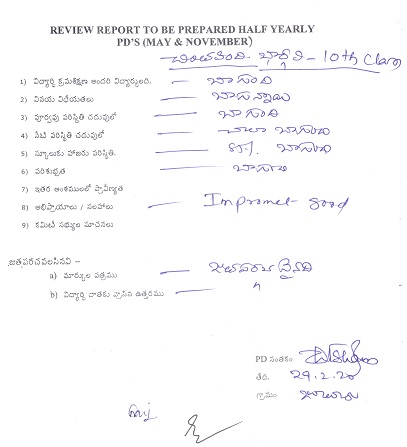 REVIEW REPORT TO BE PREPARED HALF YEARLY
PD'S (MAY & NOVEMBER)
భారతి - 10th Class
1) విద్యార్థి క్రమశిక్షణ అందరి విద్యార్థులది. — బాగుంది
2) వినయ విధేయతలు — బాగున్నాయి
3) పూర్వపు పరిస్థితి చదువులో — బాగుంది
4) నేటి పరిస్థితి చదువులో — చాలా బాగుంది
5) స్కూలుకు హాజరు పరిస్థితి. — బాగుంది
6) పరిశుభ్రత — బాగుంది
7) ఇతర అంశములలో ప్రావీణ్యత
8) అభిప్రాయాలు / సలహాలు — Impromet - good
9) కమిటీ సభ్యుల సూచనలు
జతపరచవలసినవి :-
a) మార్కుల పత్రము — జతపరచబడినది
b) విద్యార్థి దాతకు వ్రాసిన ఉత్తరము —
PD సంతకం
తేది. 29.2.20
గ్రామం